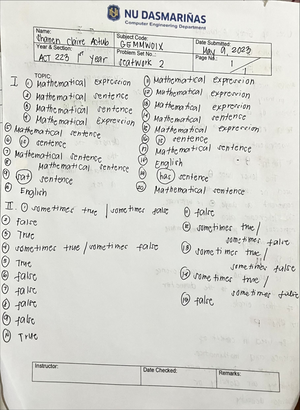 NU DASMARIÑAS
Computer Engineering Department
Name:
Subject Code:
Date Submitted:
Charmen Claire
GEMMW01X
May 9, 2023
Year & Section:
Problem Set No.:
Page No.:
ACT 223 1st Year
Seatwork 2
1
TOPIC:
I. ① Mathematical expression
② Mathematical sentence
③ Mathematical sentence
④ Mathematical Expression
⑤ Mathematical sentence
⑥ is sentence
⑦ Mathematical sentence
⑧ Mathematical sentence
⑨ sat sentence
⑩ English
⑪ Mathematical expression
⑫ Mathematical expression
⑬ Mathematical expression
⑭ Mathematical sentence
⑮ Mathematical expression
⑯ is sentence
⑰ Mathematical sentence
⑱ English
⑲ has sentence
⑳ Mathematical sentence
II. ① sometimes true / sometimes false
② false
③ True
④ sometimes true / sometimes false
⑤ True
⑥ false
⑦ false
⑧ false
⑨ false
⑩ True
⑪ false
⑫ sometimes true /
sometimes false
⑬ sometimes true /
sometimes false
⑭ sometimes true /
sometimes false
⑮ false
Instructor:
Date Checked:
Remarks: